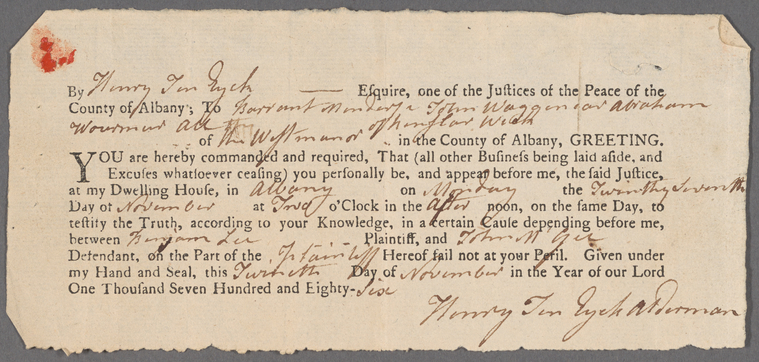 By Henry Ten Eyck — Esquire, one of the Justices of the Peace of the
County of Albany; To John Waggenear Abraham
All of the West manor of in the County of Albany, GREETING.
YOU are hereby commanded and required, That (all other Business being laid aside, and
Excuses whatsoever ceasing) you personally be, and appear before me, the said Justice,
at my Dwelling House, in Albany on Monday the Twinthy Seventh
Day of November at Two o'Clock in the after noon, on the same Day, to
testify the Truth, according to your Knowledge, in a certain Cause depending before me,
between Lee Plaintiff, and Gee
Defendant, on the Part of the Plaintiff Hereof fail not at your Peril. Given under
my Hand and Seal, this Twineth Day of November in the Year of our Lord
One Thousand Seven Hundred and Eighty-Six
Henry Ten Eyck Alderman